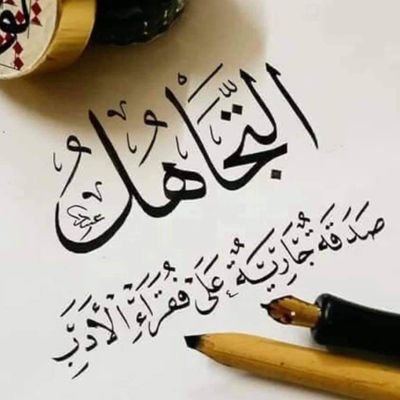 التَّجَاهُلُ
صَدَقَه جُارِيَّةٌ عَلَى فُقَرَاءِ الْأَدَبِ